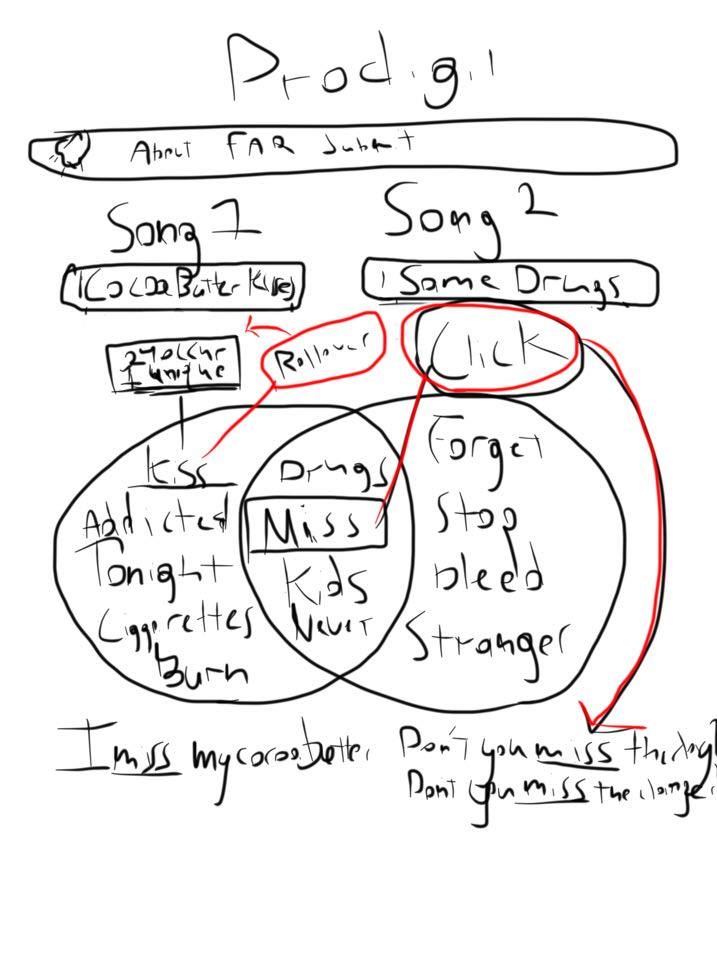 Prodigi
About FAQ Submit
Song 1
Song 2
Cocoa Butter Kisses
Same Drugs
Rollover
Click
unique
Kiss
Addicted
Tonight
Ciggerettes
Burn
Drugs
Miss
Kids
Never
Forget
Stop
bleed
Stranger
I miss my cocoa butter
Don't you miss the
Dont you miss the